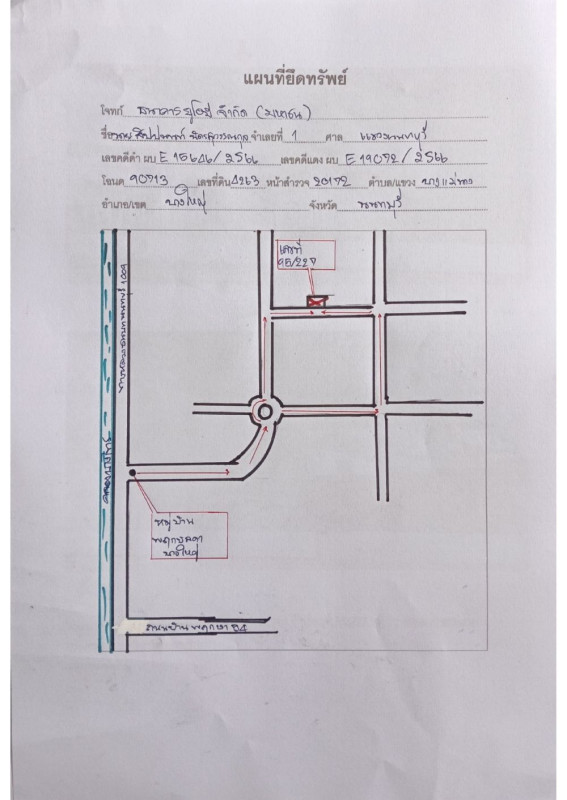 แผนที่ยึดทรัพย์
โจทก์ ธนาคารยูโอบี จำกัด (มหาชน)
ชื่อ จำเลยที่ 1 ศาล แขวงนนทบุรี
เลขคดีดำ ผบ E 15646/2566 เลขคดีแดง ผบ E 19072/2566
โฉนด 90713 เลขที่ดิน 4263 หน้าสำรวจ 20172 ตำบล/แขวง บางแม่นาง
อำเภอ/เขต บางใหญ่ จังหวัด นนทบุรี
เลขที่
95/227
1009
หมู่บ้าน
พฤกษลดา
บางใหญ่
ถนนบ้านพฤกษา 54